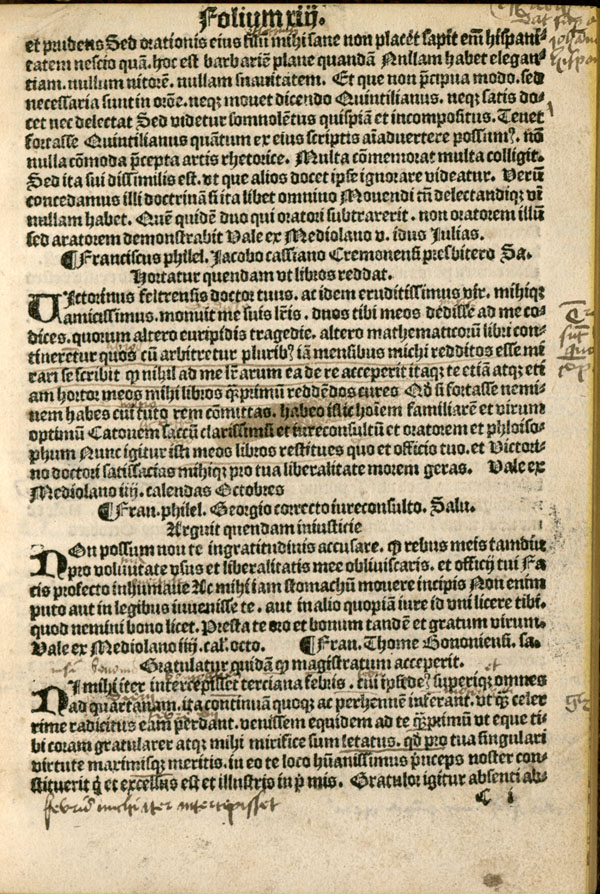 Folium xiij.
et prudens Sed orationis eius filū mihi sane non placēt sapit em̄ hispani-
tatem nescio quā. hoc est barbariē plane quandā Nullam habet elegan-
tiam. nullum nitorē. nullam suauitatem. Et que non p̄cipua modo. sed
necessaria sunt in orōne. neqʒ mouet dicendo Quintilianus. neqʒ satis do-
cet nec delectat Sed videtur somnolētus quispiā et incompositus. Tenet
fortasse Quintilianus quātum ex eius scriptis aīaduertere possumꝰ. nō
nulla cōmoda p̄cepta artis rhetorice. Multa cōmemorat multa colligit.
Sed ita sui dissimilis est. vt que alios docet ipse ignorare videatur. Verū
concedamus illi doctrinā si ita libet omnino Mouendi tn̄ delectandiqʒ vī
nullam habet. Quē quidē duo qui oratori subtraxerit. non oratorem illū
sed aratorem demonstrabit Vale ex Mediolano v. idus Julias.
¶Franciscus philel. Jacobo cassiano Cremonensi presbitero Sa.
Hortatur quendam vt libros reddat.
Victorinus feltrensis doctor tuus. ac idem eruditissimus vir. mihiqʒ
amicissimus. monuit me suis lr̄is. duos tibi meos dedisse ad me co-
dices. quorum altero euripidis tragedie. altero mathematicorū libri con-
tineretur quos cū arbitretur pluribꝰ iā mensibus michi redditos esse mē
rari se scribit ꝙ nihil ad me lr̄arum ea de re acceperit itaqʒ te etiā atqʒ eti
am hortor meos mihi libros q̄ʒprimū reddēdos cures Qd̄ si fortasse nemi-
nem habes cui tuto rem cōmittas. habeo istic hoiem familiarē et virum
optimū Catonem saccū clarissimū et iureconsultū et oratorem et philoso-
phum Nunc igitur isti meos libros restitues quo et officio tuo. et Victori-
no doctori satisfacias mihiqʒ pro tua liberalitate morem geras. Vale ex
Mediolano iiij. calendas Octobres
¶Fran. philel. Georgio correcto iureconsulto. Salu.
Arguit quendam iniusticie
NOn possum non te ingratitudinis accusare. ꝙ rebus meis tamdiu
pro voluntate vsus et liberalitatis mee obliuiscaris. et officij tui Fa
cis profecto inhumane Ac mihi iam stomachū mouere incipis Non enim
puto aut in legibus inuenisse te. aut in alio quopiā iure id vni licere tibi.
quod nemini bono licet. Presta te oro et bonum tandē et gratum virum.
Vale ex Mediolano iiij. cal. octo. ¶Fran. Thome Bononiensi. sa.
Gratulatur quidā ꝙ magistratum acceperit.
NI mihi iter intercepisset terciana febris. cui ipsedeꝰ superiqʒ omnes
ad quartanam. ita continuā quoqʒ ac perhennē inferant. vt q̄ʒ celer
rime radicitus eam perdant. venissem equidem ad te q̄ʒprimū vt eque ti-
bi coram gratularer atqʒ mihi mirifice sum letatus. qd̄ pro tua singulari
virtute maximisqʒ meritis. in eo te loco hūanissimus p̄nceps noster con-
stituerit q̄ et excelsus est et illustris in p̄mis. Gratulor igitur absenti ab-
c i